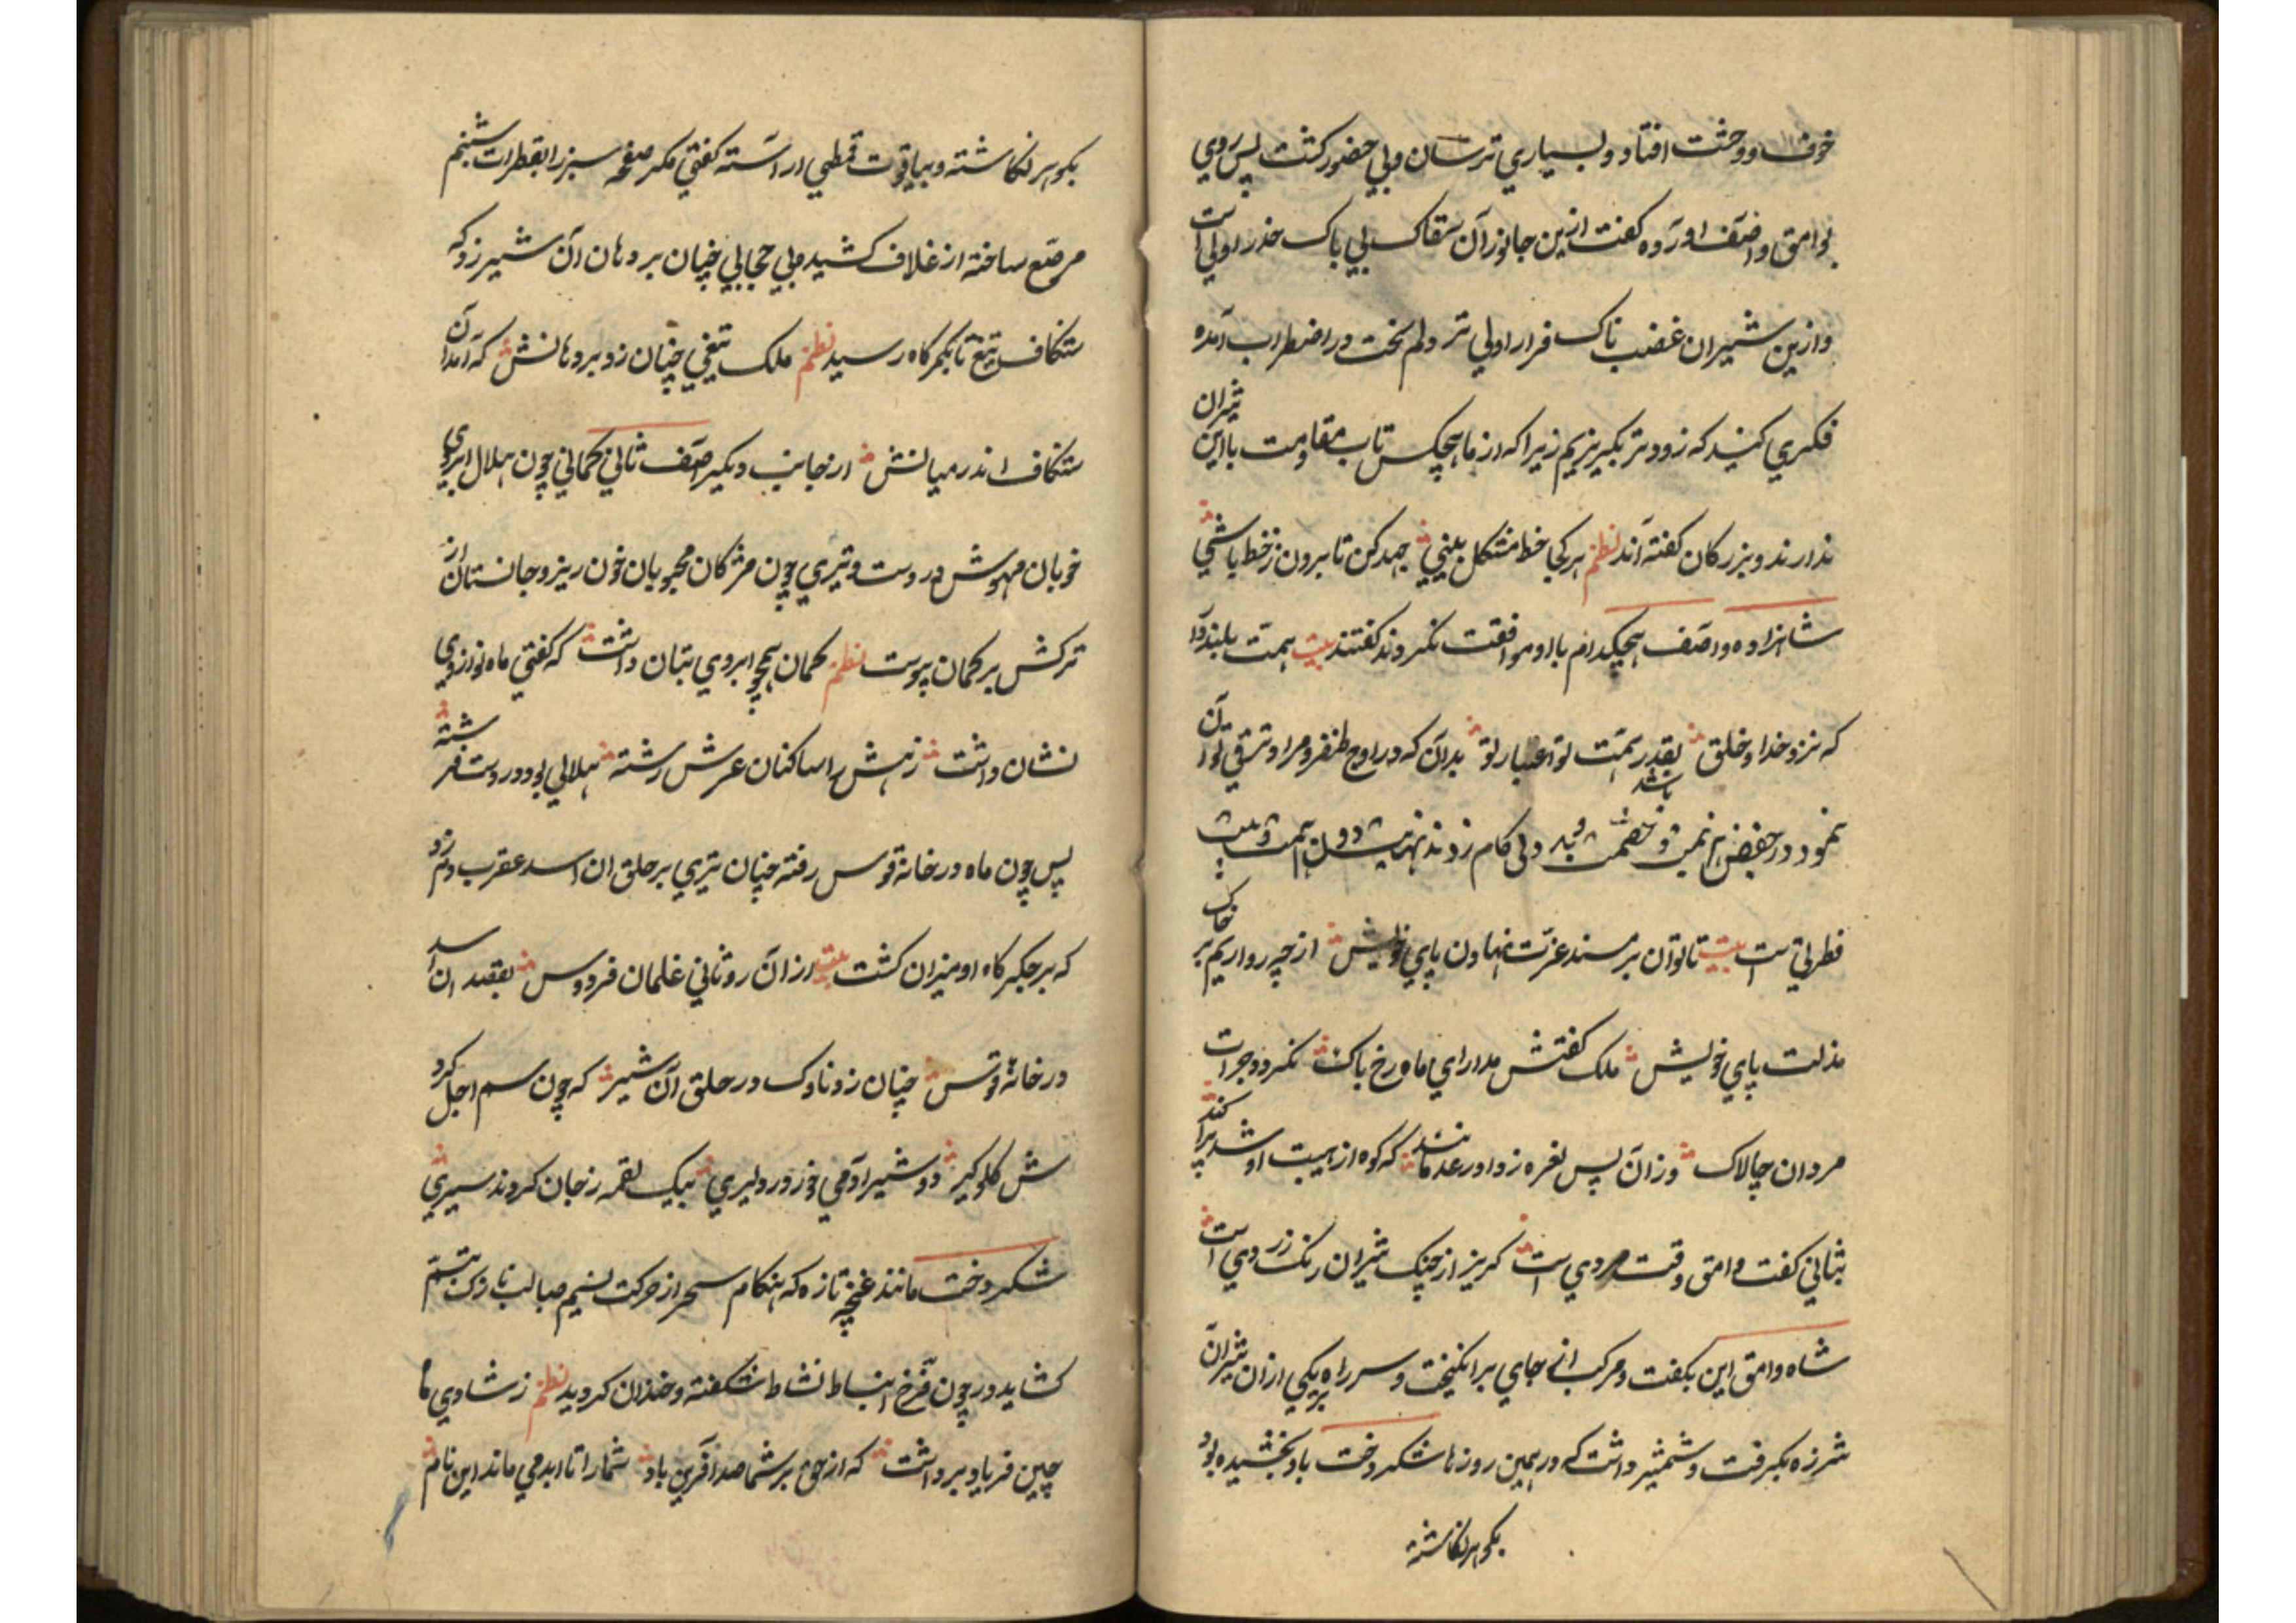 خوف و وحشت افتاد و بسیاري ترسان و بي حضور کشت پس روي
بوامق و اصف اورده کفت ازین جانوران سفاک بي باک حذر اولي است
و ازین شیران غضب ناک فرار اولي تر دلم سخت در اضطراب آمده
فکري کنید که زودتر بکریزیم زیرا که از ما هیچکس تاب مقاومت با این شیران
ندارند و بزرکان کفته‌اند نظم هر کجا خط مشکل بیني جهد کن تا برون ز خط باشي
شاهزاده و اصف هیچکدام با او موافقت نکردند کفتند بیت همت بلند دار
که نزد خدا و خلق بقدر همت تو اعتبار تو بدان که در اوج ظفر و مراد ترقي توان
نمود در حضیض کام زدند همت
فطرتي است بیت تا توان بر مسند عزت نهادن پاي خویش از چه رو اریم بر خاک
مذلت پاي خویش ملک کفتش مدار اي ماه رخ باک نکردد جرات
مردان چالاک وزان پس نعره زد او رعد مانند که کوه از هیبت او شد پراکند
بثاني کفت وامق وقت مردي است کریز از چنک شیران رنک زردي است
شاه وامق این بکفت و مرکب از جاي برانکیخت و سر راه بر یکي از ان شیران
شرزه بکرفت و شمشیر داشت که در همین روزها شکردخت باو بخشیده بود
بکوهر نکاشته
بکوهر نکاشته و بیاقوت قطبي اراسته کفتي مکر صفحه سبز را بقطرات شبنم
مرصع ساخته از غلاف کشید و بي حجابي چنان بر دهان آن شیر زد که
شکاف تیغ تا بکمرکاه رسید نظم ملک تیغي چنان زد بر دهانش که آمد آن
شکاف اندر میانش از جانب دیکر اصف ثاني کماني چون هلال ابروي
خوبان مهوش در دست و تیري چون مژکان محبوبان خون ریز و جانستان از
ترکش بر کمان پیوست نظم کمان همچو ابروي بتان داشت که کفتي ماه نو از وي
نشان داشت زهش را ساکنان عرش رشته هلالي بود در دست فرشته
پس چون ماه در خانه قوس رفته چنان تیري بر حلق ان اسد عقرب دم زد
که بر جکرکاه او میزان کشت بیت ازان رو ثاني غلمان فردوس بقصد ان اسد
در خانهٔ قوس چنان زد ناوک در حلق آن شیر که چون سم اجل کرد
ش کلوکیر دو شیر ادمي در زور دلیري بیک لقمه ز جان کردند سیري
شکردخت مانند غنچه تازه که هنکام سحر از حرکت نسیم صبا لب نازک بتبسم
کشاید در چون فرخ انبساط نشاط شکفته و خندان کردید نظم ز شادي ما
چین فریاد برداشت که از حق بر شما صد افرین باد شما را تا ابد مي ماند این نام